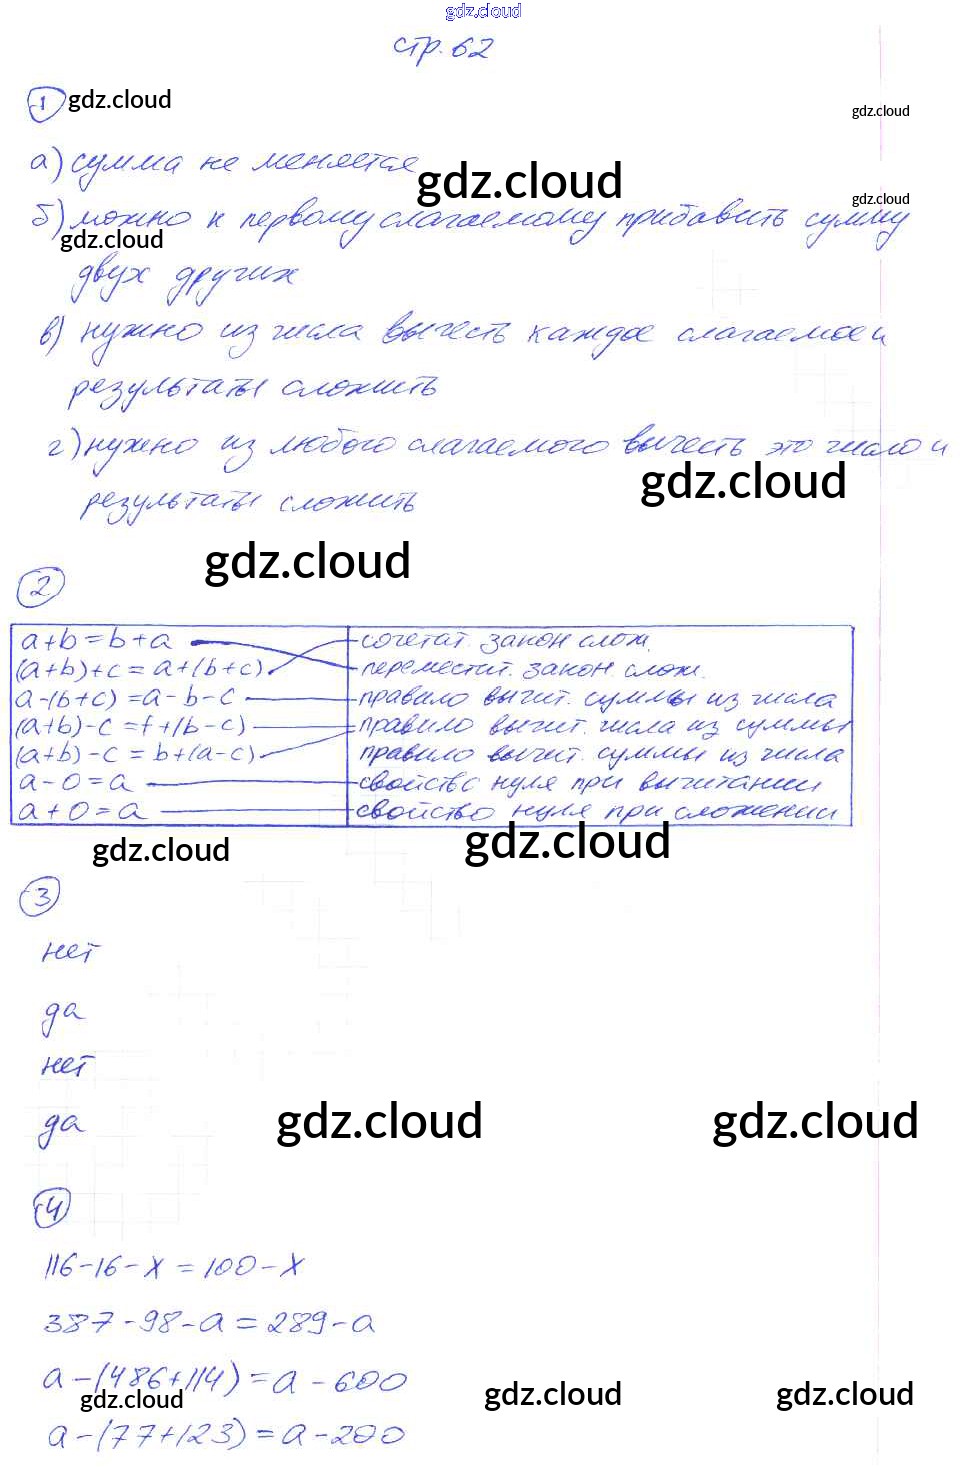 gdz.cloud
стр. 62
1 gdz.cloud
gdz.cloud
а) сумма не меняется
gdz.cloud
gdz.cloud
б) можно к первому слагаемому прибавить сумму
gdz.cloud
двух других
в) нужно из числа вычесть каждое слагаемое и
результаты сложить
г) нужно из любого слагаемого вычесть это число и
gdz.cloud
результаты сложить
gdz.cloud
2
a+b=b+a сочетат. закон слож.
(a+b)+c=a+(b+c) переместит. закон слож.
a-(b+c)=a-b-c правило вычит. суммы из числа
(a+b)-c=f+(b-c) правило вычит. числа из суммы
(a+b)-c=b+(a-c) правило вычит. суммы из числа
a-0=a свойство нуля при вычитании
a+0=a свойство нуля при сложении
gdz.cloud gdz.cloud
3
нет
да
нет
да
gdz.cloud gdz.cloud
4
116-16-x=100-x
387-98-a=289-a
a-(486+114)=a-600
gdz.cloud gdz.cloud gdz.cloud
a-(77+123)=a-200